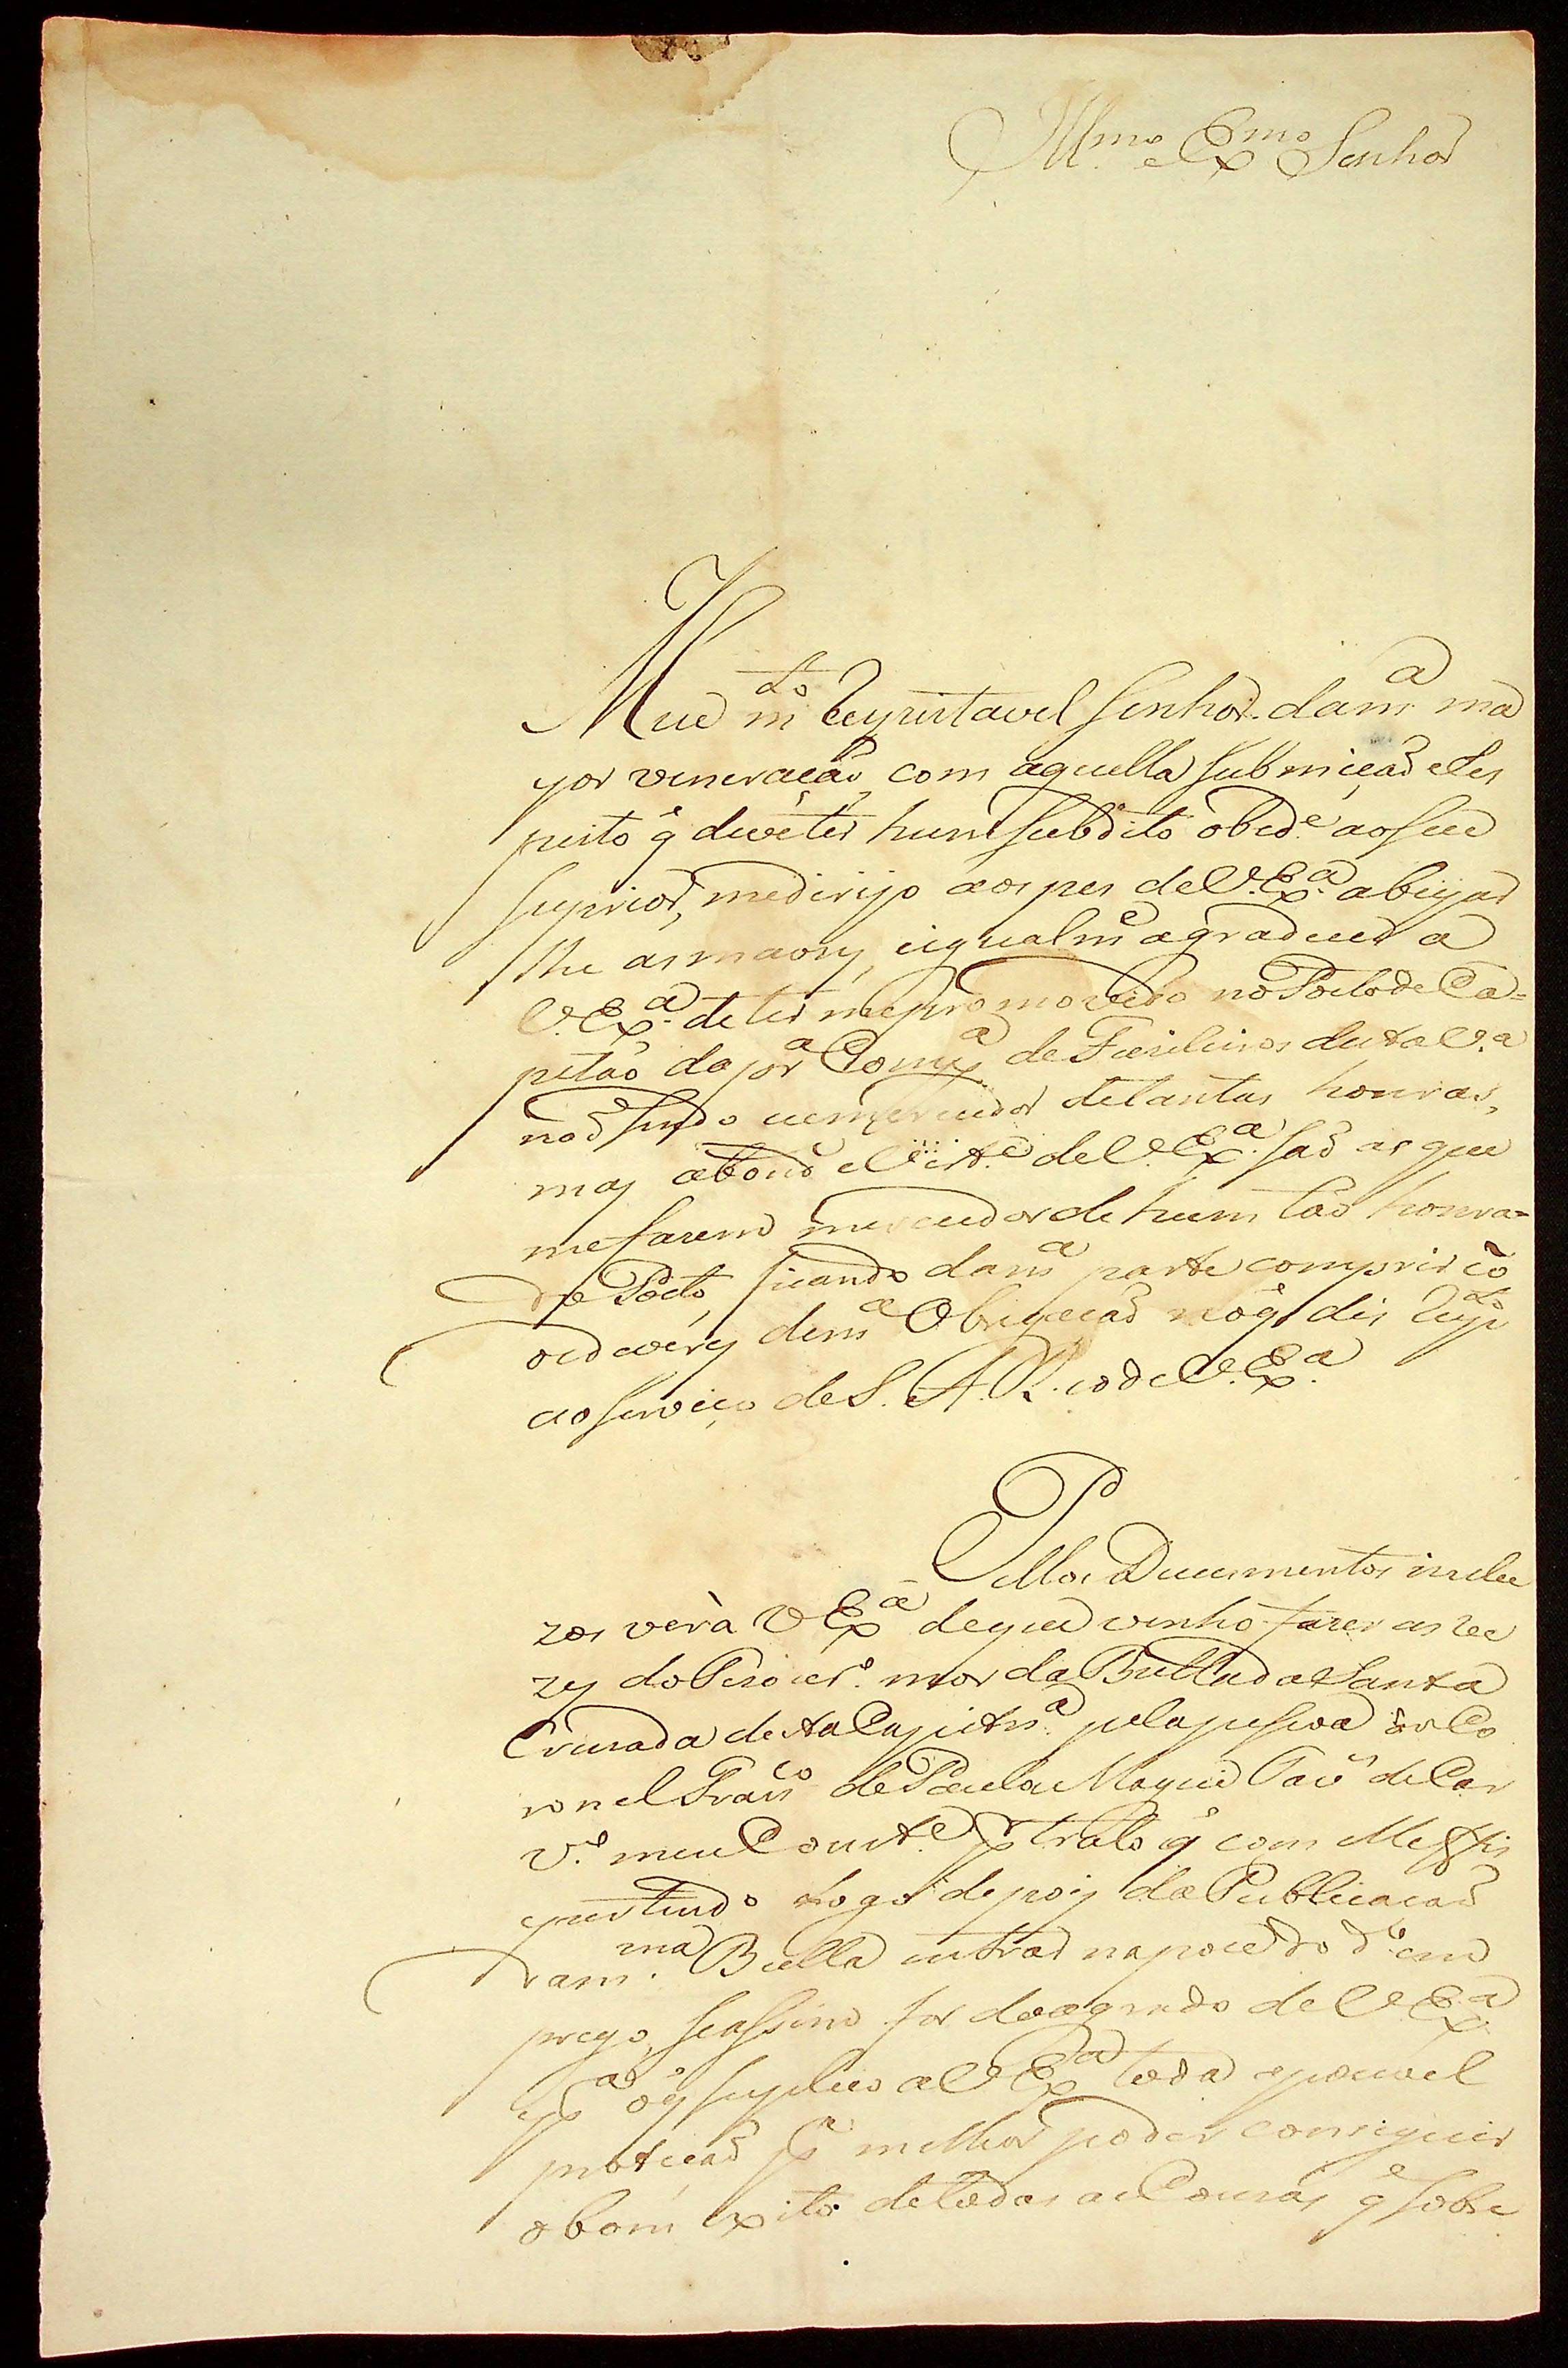 Ill.mo e Ex.mo Senhor
Meu m.to respeitavel Senhor. da m.a ma
yor veneração, com aquella submição e Res
peito q̃ deve ter hum subdito obed.e ao seu
suprior, me dirijo aos pes de V. Ex.a a beijar
lhe as maons, e igualm.e agradecer a
V. Ex.a de ter me promovido no Posto de Ca=
pitão da pr.a Comp.a de Fuzileiros desta V.a
não sendo eu merecedor de tantas honras,
mas abond.e e de V. Ex.a são as que
me fazem merecedor de hum tão honra=
do Posto, ficando da m.a parte comprir cõ
os deveres de m.a Obrigação no q̃ diz resp.to
ao serviço de S. A. R. e o de V. Ex.a
Pellos Documentos inclu
zos verà V Ex.a de que venho fazer as ve
zes do Thezoier.o mor da Bulla da Santa
Cruzada desta Capit.nia pela pessoa do Co
ronel Fran.co de Paula Maggessi Tav.es de Car
v.o meu Const.e p.r trato q̃ com elle fis
pertendo Logo depois da Publicação
da m.ma Bulla entrar na poce do d.o em
prego, se assim for do agrado de V Ex.a
p.a o q̃ suplico a V Ex.a toda a pocivel
proteção p.a milhor poder conseguir
o bom exito de todas as Couzas q̃ sobre